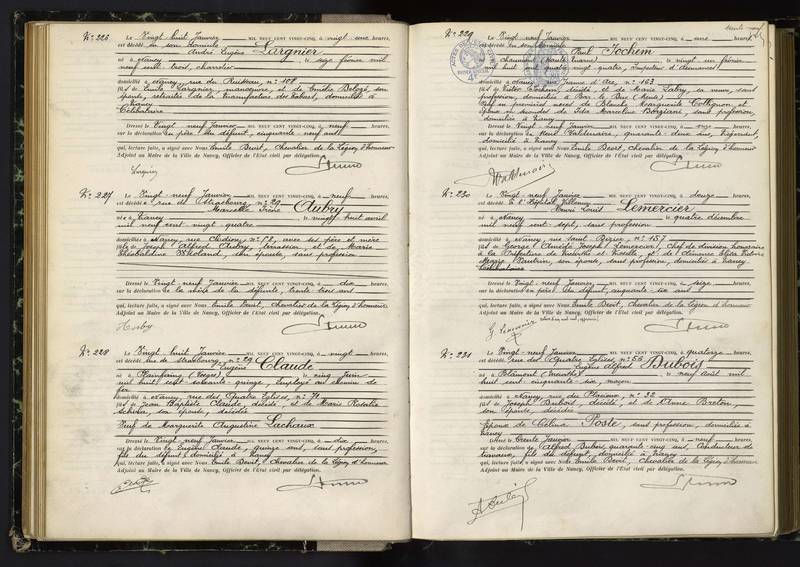 N° 226
Le Vingt huit Janvier MIL NEUF CENT VINGT-CINQ, à vingt une heures,
est décédé en son domicile
André Eugène Largnier
né à Nancy le seize février mil
neuf cent trois, chaudier
domicilié à Nancy, rue du Ruisseau, n° 108
fils de Emile Largnier, manoeuvre, et de Emélie
épouse, retraitée de la manufacture des tabacs, domiciliés à
Nancy
Célibataire
Dressé le Vingt neuf Janvier MIL NEUF CENT VINGT-CINQ, à neuf heures,
sur la déclaration du père du défunt, cinquante neuf ans
qui, lecture faite, a signé avec Nous Emile Bevit, Chevalier de la Légion d'honneur
Adjoint au Maire de la Ville de Nancy, Officier de l'Etat civil par délégation.
Largnier
N° 227
Le Vingt-neuf Janvier MIL NEUF CENT VINGT-CINQ, à neuf heures,
est décédée rue de Strasbourg, n° 29
Irène Aubry
née à Nancy le vingt huit avril
mil neuf cent vingt quatre
domiciliée à Nancy, rue n° 12, avec ses père et mère
fille de Joseph Alfred Aubry, terrassier, et de Marie
son épouse, sans profession
Dressé le Vingt neuf Janvier MIL NEUF CENT VINGT-CINQ, à dix heures,
sur la déclaration de la mère de la défunte, trente trois ans
qui, lecture faite, a signé avec Nous Emile Bevit, Chevalier de la Légion d'honneur
Adjoint au Maire de la Ville de Nancy, Officier de l'Etat civil par délégation.
N° 228
Le Vingt-huit Janvier MIL NEUF CENT VINGT-CINQ, à vingt heures,
est décédé rue de Strasbourg, n° 29
Eugène Claude
né à Plainfaing (Vosges) le cinq Juin
mil huit cent soixante quinze, employé au chemin de
fer
domicilié à Nancy, rue des Quatre Eglises, n° 71
fils de Jean Baptiste Claude, décédé, et de Marie Rosalie
son épouse, décédée
Veuf de Marguerite Augustine Lachaux
Dressé le Vingt-neuf Janvier MIL NEUF CENT VINGT-CINQ, à dix heures,
sur la déclaration de Eugène Claude, quinze ans, sans profession,
fils du défunt, domicilié à Nancy
qui, lecture faite, a signé avec Nous Emile Bevit, Chevalier de la Légion d'honneur
Adjoint au Maire de la Ville de Nancy, Officier de l'Etat civil par délégation.
N° 229
Le Vingt neuf Janvier MIL NEUF CENT VINGT-CINQ, à une heures,
est décédé en son domicile
Paul Jochem
né à Chaumont (Haute Marne) le vingt un février
mil huit cent quatre vingt quatre, Inspecteur d'assurances
domicilié à Nancy, rue Jeanne d'Arc, n° 163
fils de Victor Jochem, décédé, et de Marie Labry, sa veuve, sans
profession, domiciliée à Bar le Duc (Meuse)
Veuf en premières noces de Blanche Marguerite Collignon, et
époux en secondes de Ida Marcelina Borgiani, sans profession,
domiciliée à Nancy
Dressé le Vingt neuf Janvier MIL NEUF CENT VINGT-CINQ, à onze heures,
sur la déclaration de Paul quarante deux ans, Négociant,
domicilié à Nancy
qui, lecture faite, a signé avec Nous Emile Bevit, Chevalier de la Légion d'honneur
Adjoint au Maire de la Ville de Nancy, Officier de l'Etat civil par délégation.
N° 230
Le Vingt-neuf Janvier MIL NEUF CENT VINGT-CINQ, à douze heures,
est décédé à l'Hôpital Villemin
Henri Louis Lemercier
né à Nancy le quatre décembre
mil neuf cent sept, sans profession
domicilié à Nancy, rue Saint n° 157
fils de George Amédée Joseph Lemercier, Chef de division honoraire
à la Préfecture de Meurthe et Moselle, et de Clémence
Marie son épouse, sans profession, domiciliés à Nancy
Célibataire
Dressé le Vingt-neuf Janvier MIL NEUF CENT VINGT-CINQ, à seize heures,
sur la déclaration du père du défunt, cinquante six ans
qui, lecture faite, a signé avec Nous Emile Bevit, Chevalier de la Légion d'honneur
Adjoint au Maire de la Ville de Nancy, Officier de l'Etat civil par délégation.
G. Lemercier
N° 231
Le Vingt-neuf Janvier MIL NEUF CENT VINGT-CINQ, à quatorze heures,
est décédé rue des Quatre Eglises, n° 55
Eugène Alfred Dubois
né à Blâmont (Meurthe) le neuf août mil
huit cent cinquante six, maçon
domicilié à Nancy, rue de n° 32
fils de Joseph Dubois, décédé, et de Anne Breton,
son épouse, décédée
Epoux de Celina Poste, sans profession, domiciliée à
Nancy
Dressé le Trente Janvier MIL NEUF CENT VINGT-CINQ, à neuf heures,
sur la déclaration de Alfred Dubois, quarante cinq ans, Conducteur de
travaux, fils du défunt, domicilié à Nancy
qui, lecture faite, a signé avec Nous Emile Bevit, Chevalier de la Légion d'honneur
Adjoint au Maire de la Ville de Nancy, Officier de l'Etat civil par délégation.